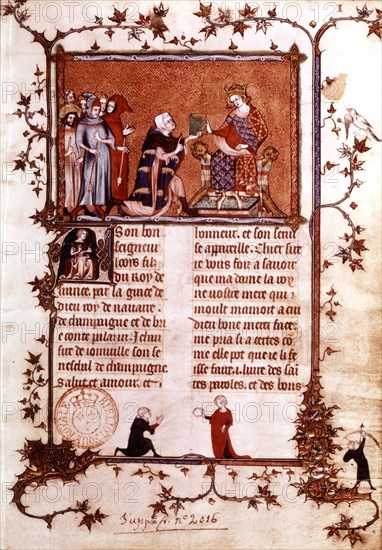 A son bon
seigneur
loys filz
du roy de
france. par la grace de
dieu roy de nauarre.
de champaigne et de brie
conte palatin. Jehan
sire de ionuille son se
neschal de champaigne
salut et amour. et
lonneur. et son seruise
appareille. Chier sire
ie vous foiz a sauoir
que ma dame la royne
vostre mere qui
moult mamoit a cui
dieu bone merci face.
me pria si a certes comme
elle pot que ie li feisse
faire .i. liure des saintes
paroles. et des bons
Suppl. fr. nº 2016